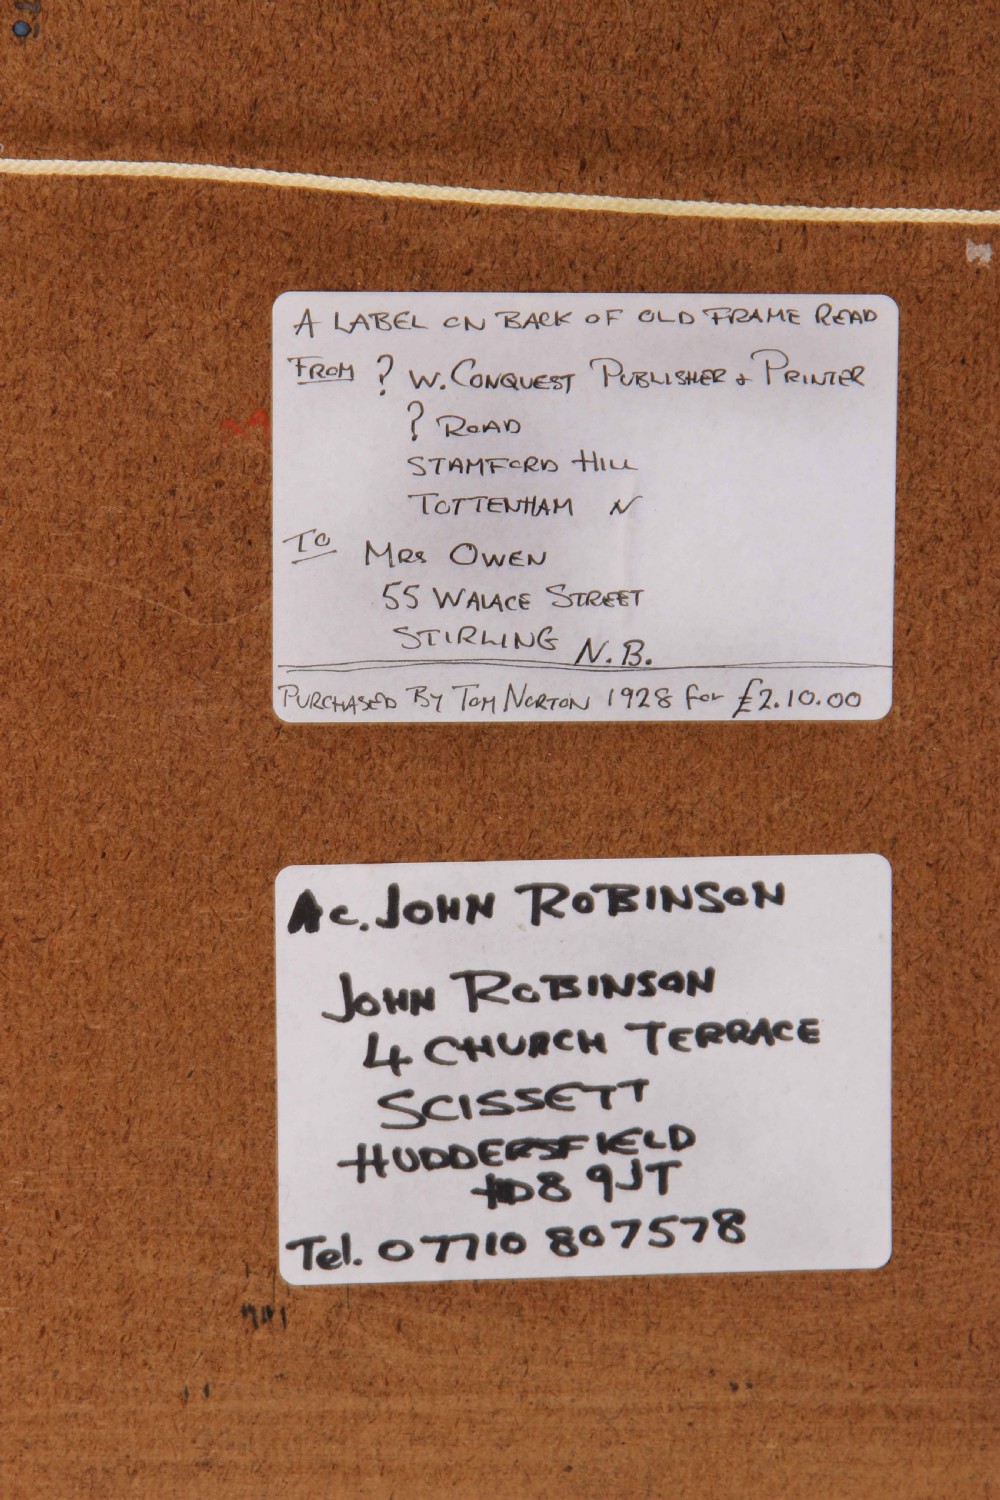 A LABEL ON BACK OF OLD FRAME READ
FROM ? W. CONQUEST PUBLISHER & PRINTER
? ROAD
STAMFORD HILL
TOTTENHAM N
TO MRS OWEN
55 WALACE STREET
STIRLING N.B.
PURCHASED BY TOM NORTON 1928 for £2.10.00
Ac. JOHN ROBINSON
JOHN ROBINSON
4 CHURCH TERRACE
SCISSETT
HUDDERSFIELD
HD8 9JT
Tel. 07710 807578